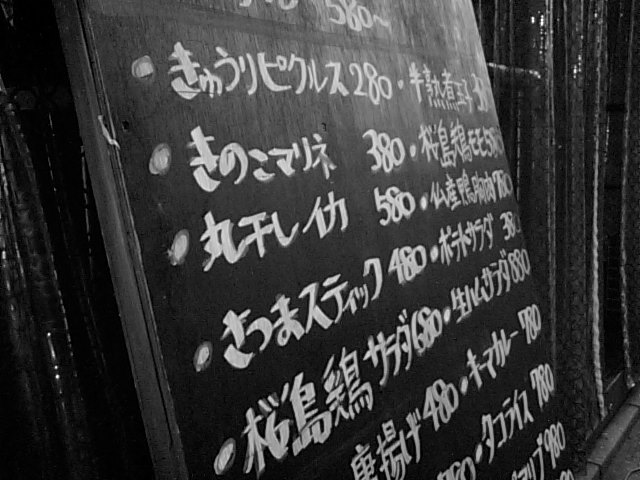 580~
・きゅうりピクルス 280 ・半熟煮玉子
・きのこマリネ 380 ・桜島鶏モモ 580
・丸干しイカ 580 ・仏産鴨胸肉 780
・さつまスティック 480 ・ポテトサラダ 380
・桜島鶏サラダ 680 ・生ハムサラダ 880
唐揚げ 480 ・キーマカレー 780
780 ・タコライス 780
980